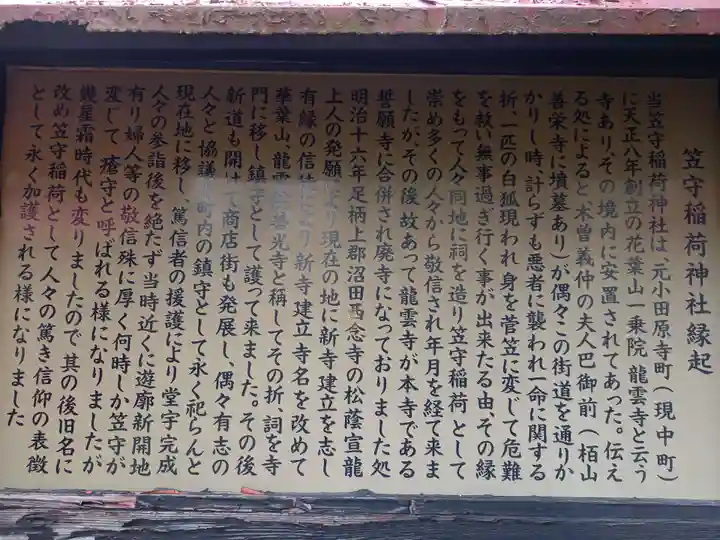 笠守稲荷神社縁起
当笠守稲荷神社は、元小田原寺町(現中町)
に天正八年創立の花葉山一乗院龍雲寺と云う
寺あり、その境内に安置されてあった。伝え
る処によると木曽義仲の夫人巴御前(栢山
善栄寺に墳墓あり)が偶々この街道を通りか
かりし時、計らずも悪者に襲われ一命に関する
折、一匹の白狐現われ身を菅笠に変じて危難
を救い無事過ぎ行く事が出来たる由、その縁
をもって人々同地に祠を造り笠守稲荷として
崇め多くの人々から敬信され年月を経て来ま
したが、その後故あって龍雲寺が本寺である
誓願寺に合併され廃寺になっておりました処
明治十六年足柄上郡沼田西念寺の松蔭宣龍
上人の発願により現在の地に新寺建立を志し
有縁の信徒により新寺建立寺名を改めて
華業山、龍雲院善光寺と称してその折、詞を寺
門に移し鎮守として護って来ました。その後
新道も開けて商店街も発展し、偶々有志の
人々と協議町内の鎮守として永く祀らんと
現在地に移し、篤信者の援護により堂宇完成
人々の参詣後を絶たず当時近くに遊廓新開地
有り婦人等の敬信殊に厚く何時しか笠守が
変じて瘡守と呼ばれる様になりましたが
幾星霜時代も変りましたので、其の後旧名に
改め笠守稲荷として人々の篤き信仰の表徴
として永く加護される様になりました